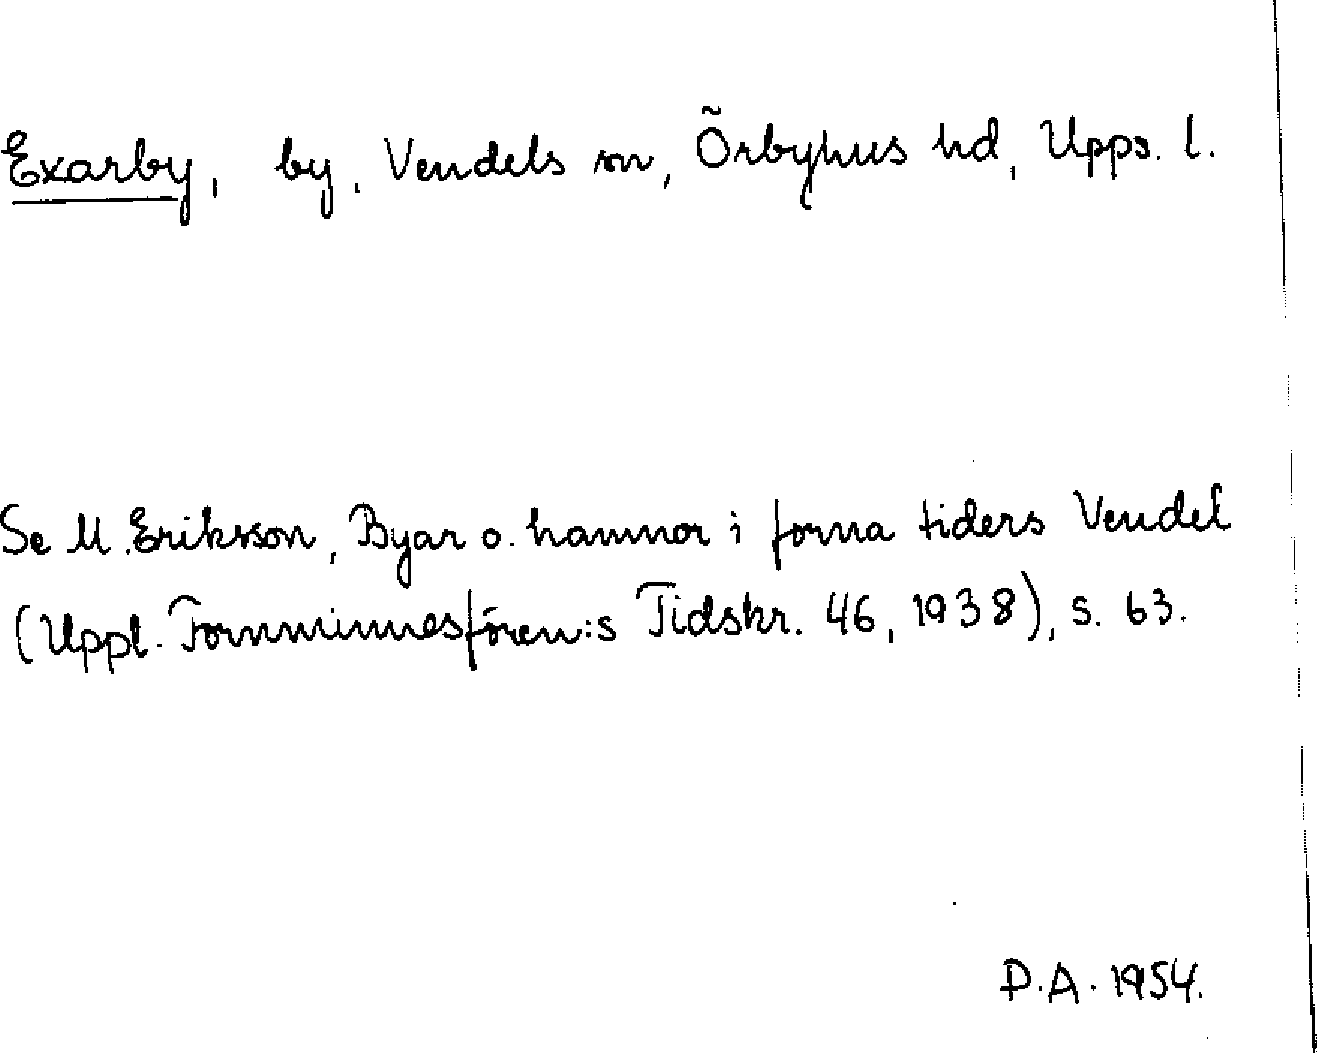 Exarby, by, Vendels sn, Örbyhus hd, Upps. l.
Se M. Eriksson, Byar o. hamnor i forna tiders Vendel
(Uppl. Fornminnesfören:s Tidskr. 46, 1938), s. 63.
P.A. 1954.